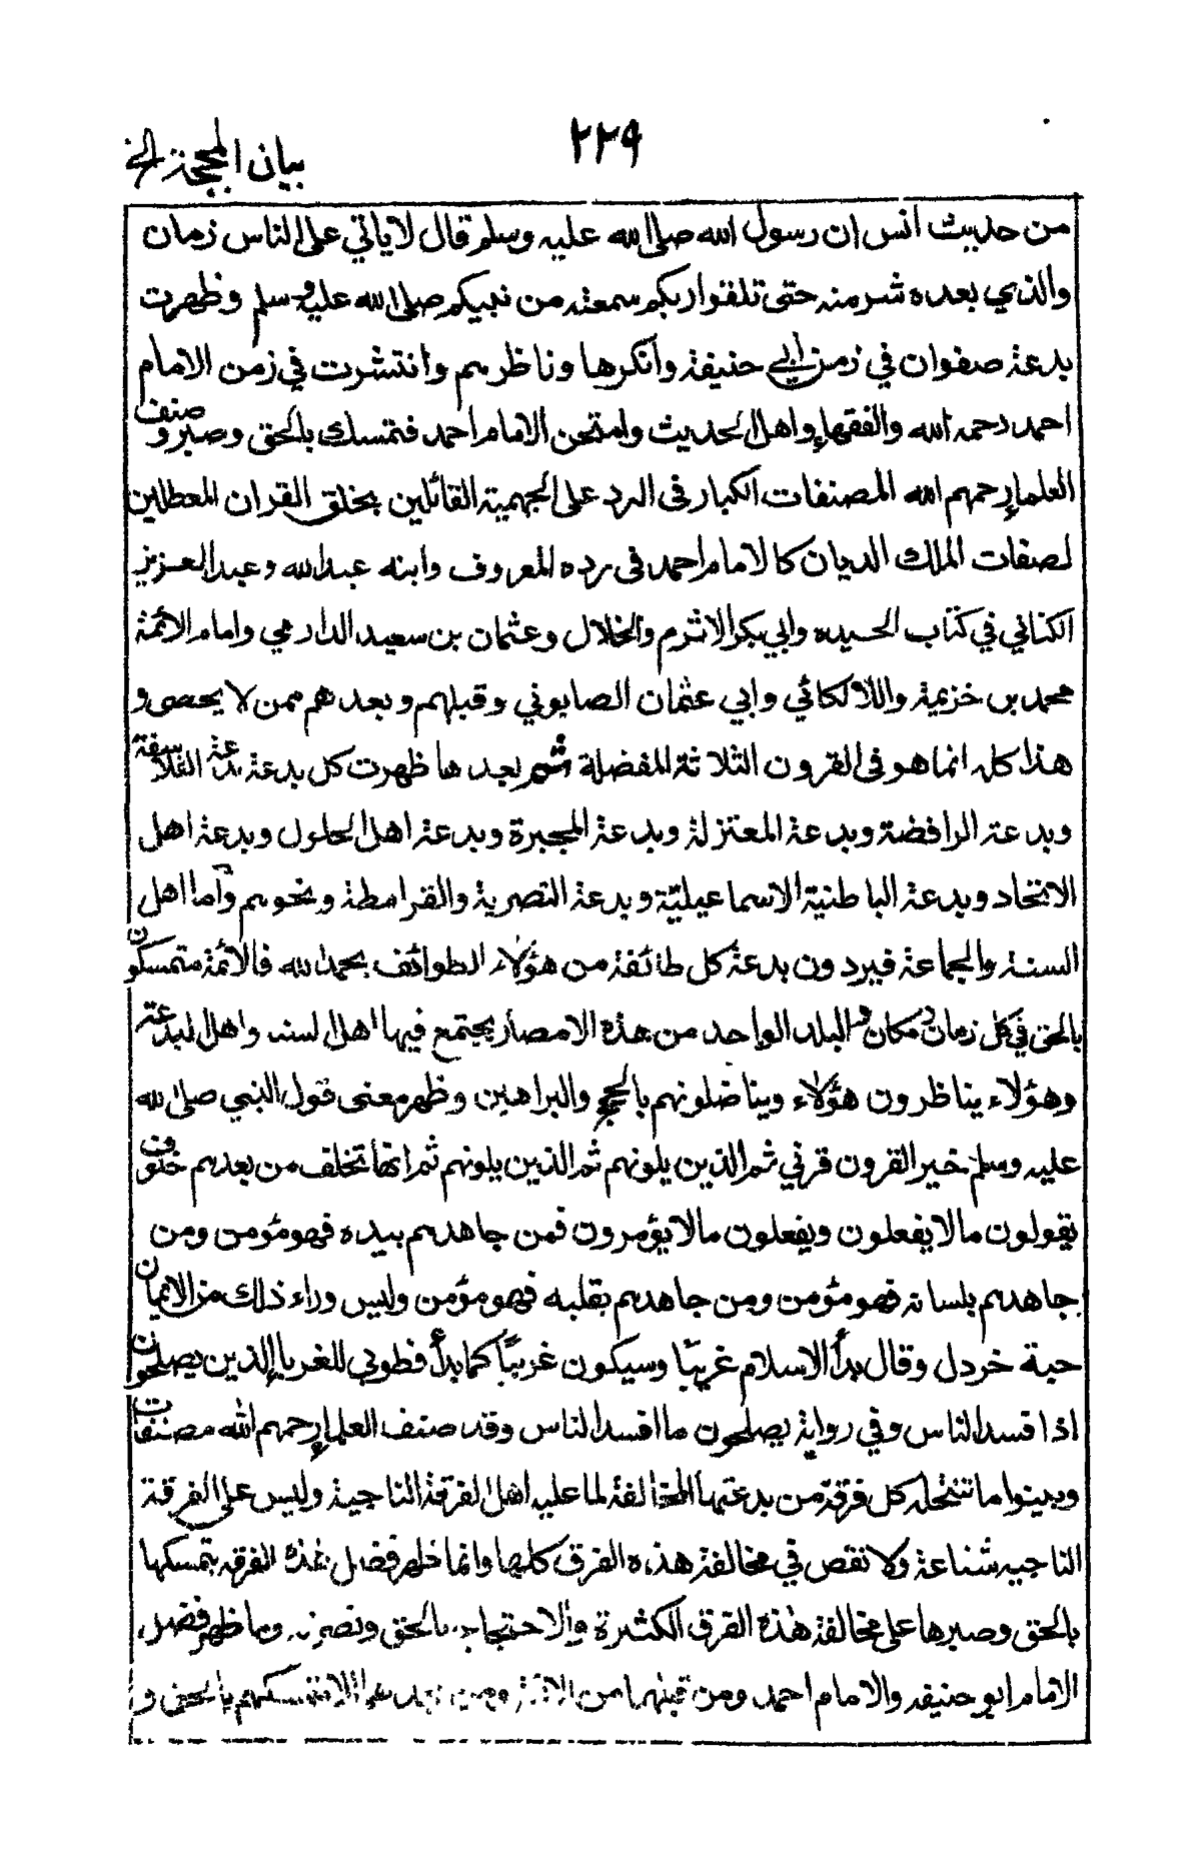 ٢٢٩
بيان المحجة الخ
من حديث انس ان رسول الله صلى الله عليه وسلم قال لا ياتي على الناس زمان
والذي بعده شر منه حتى تلقوا ربكم سمعته من نبيكم صلى الله عليه وسلم وظهرت
بدعة صفوان في زمن ابي حنيفة وانكرها وناظرهم وانتشرت في زمن الامام
احمد رحمه الله والفقهاء واهل الحديث وامتحن الامام احمد فتمسك بالحق وصبر وصنف
العلماء رحمهم الله المصنفات الكبار في الرد على الجهمية القائلين بخلق القران المعطلين
لصفات الملك الديان كالامام احمد في رده المعروف وابنه عبدالله وعبد العزيز
الكناني في كتاب الحيده وابي بكر الاثرم والخلال وعثمان بن سعيد الدارمي وامام الائمة
محمد بن خزيمة واللالكائي وابي عثمان الصابوني وقبلهم وبعدهم ممن لا يحصى و
هذا كله انما هو في القرون الثلاثة المفضلة ثم بعدها ظهرت كل بدعة بدعة الفلاسفة
وبدعة الرافضة وبدعة المعتزلة وبدعة المجبرة وبدعة اهل الحلول وبدعة اهل
الاتحاد وبدعة الباطنية الاسماعيلية وبدعة النصرية والقرامطة ونحوهم وأما اهل
السنة والجماعة فيردون بدعة كل طائفة من هؤلاء الطوائف بحمد الله فالائمة متمسكون
بالحق في كل زمان ومكان والبلد الواحد من هذه الامصار يجتمع فيها اهل السنه واهل البدعة
وهؤلاء يناظرون هؤلاء ويناضلونهم بالحجج والبراهين وظهر معنى قول النبي صلى الله
عليه وسلم خير القرون قرني ثم الذين يلونهم ثم الذين يلونهم ثم انها تخلف من بعدهم خلوف
يقولون مالا يفعلون ويفعلون مالا يؤمرون فمن جاهدهم بيده فهو مؤمن ومن
جاهدهم بلسانه فهو مؤمن ومن جاهدهم بقلبه فهو مؤمن وليس وراء ذلك من الايمان
حبة خردل وقال بدأ الاسلام غريبًا وسيكون غريبًا كما بدأ فطوبى للغرباء الذين يصلحون
اذا فسد الناس وفي رواية يصلحون ما افسد الناس وقد صنف العلماء رحمهم الله مصنفات
وبينوا ما تنتحله كل فرقة من بدعتها المخالفة لما عليه اهل الفرقة الناجية وليس على الفرقة
الناجيه شناعة ولا نقص في مخالفة هذه الفرق كلها وانما ظهر فضل هذه الفرقه بتمسكها
بالحق وصبرها على مخالفة هذه الفرق الكثيرة والاحتجاج بالحق ونصرته وما ظهر فضل
الامام ابو حنيفه والامام احمد ومن قبلهما من الائمة ومن بعدهما الا بتمسكهم بالحق و